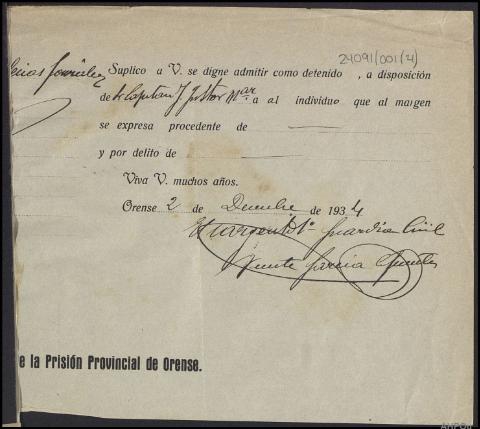 24091/001(4)
González Suplico a V. se digne admitir como detenido , a disposición
de l Capitan J Instor Mar a al individuo que al margen
se expresa procedente de
y por delito de
Viva V. muchos años.
Orense 2 de Diciembre de 1934
El Sargento Guardia Civil
Vicente García
e la Prisión Provincial de Orense.